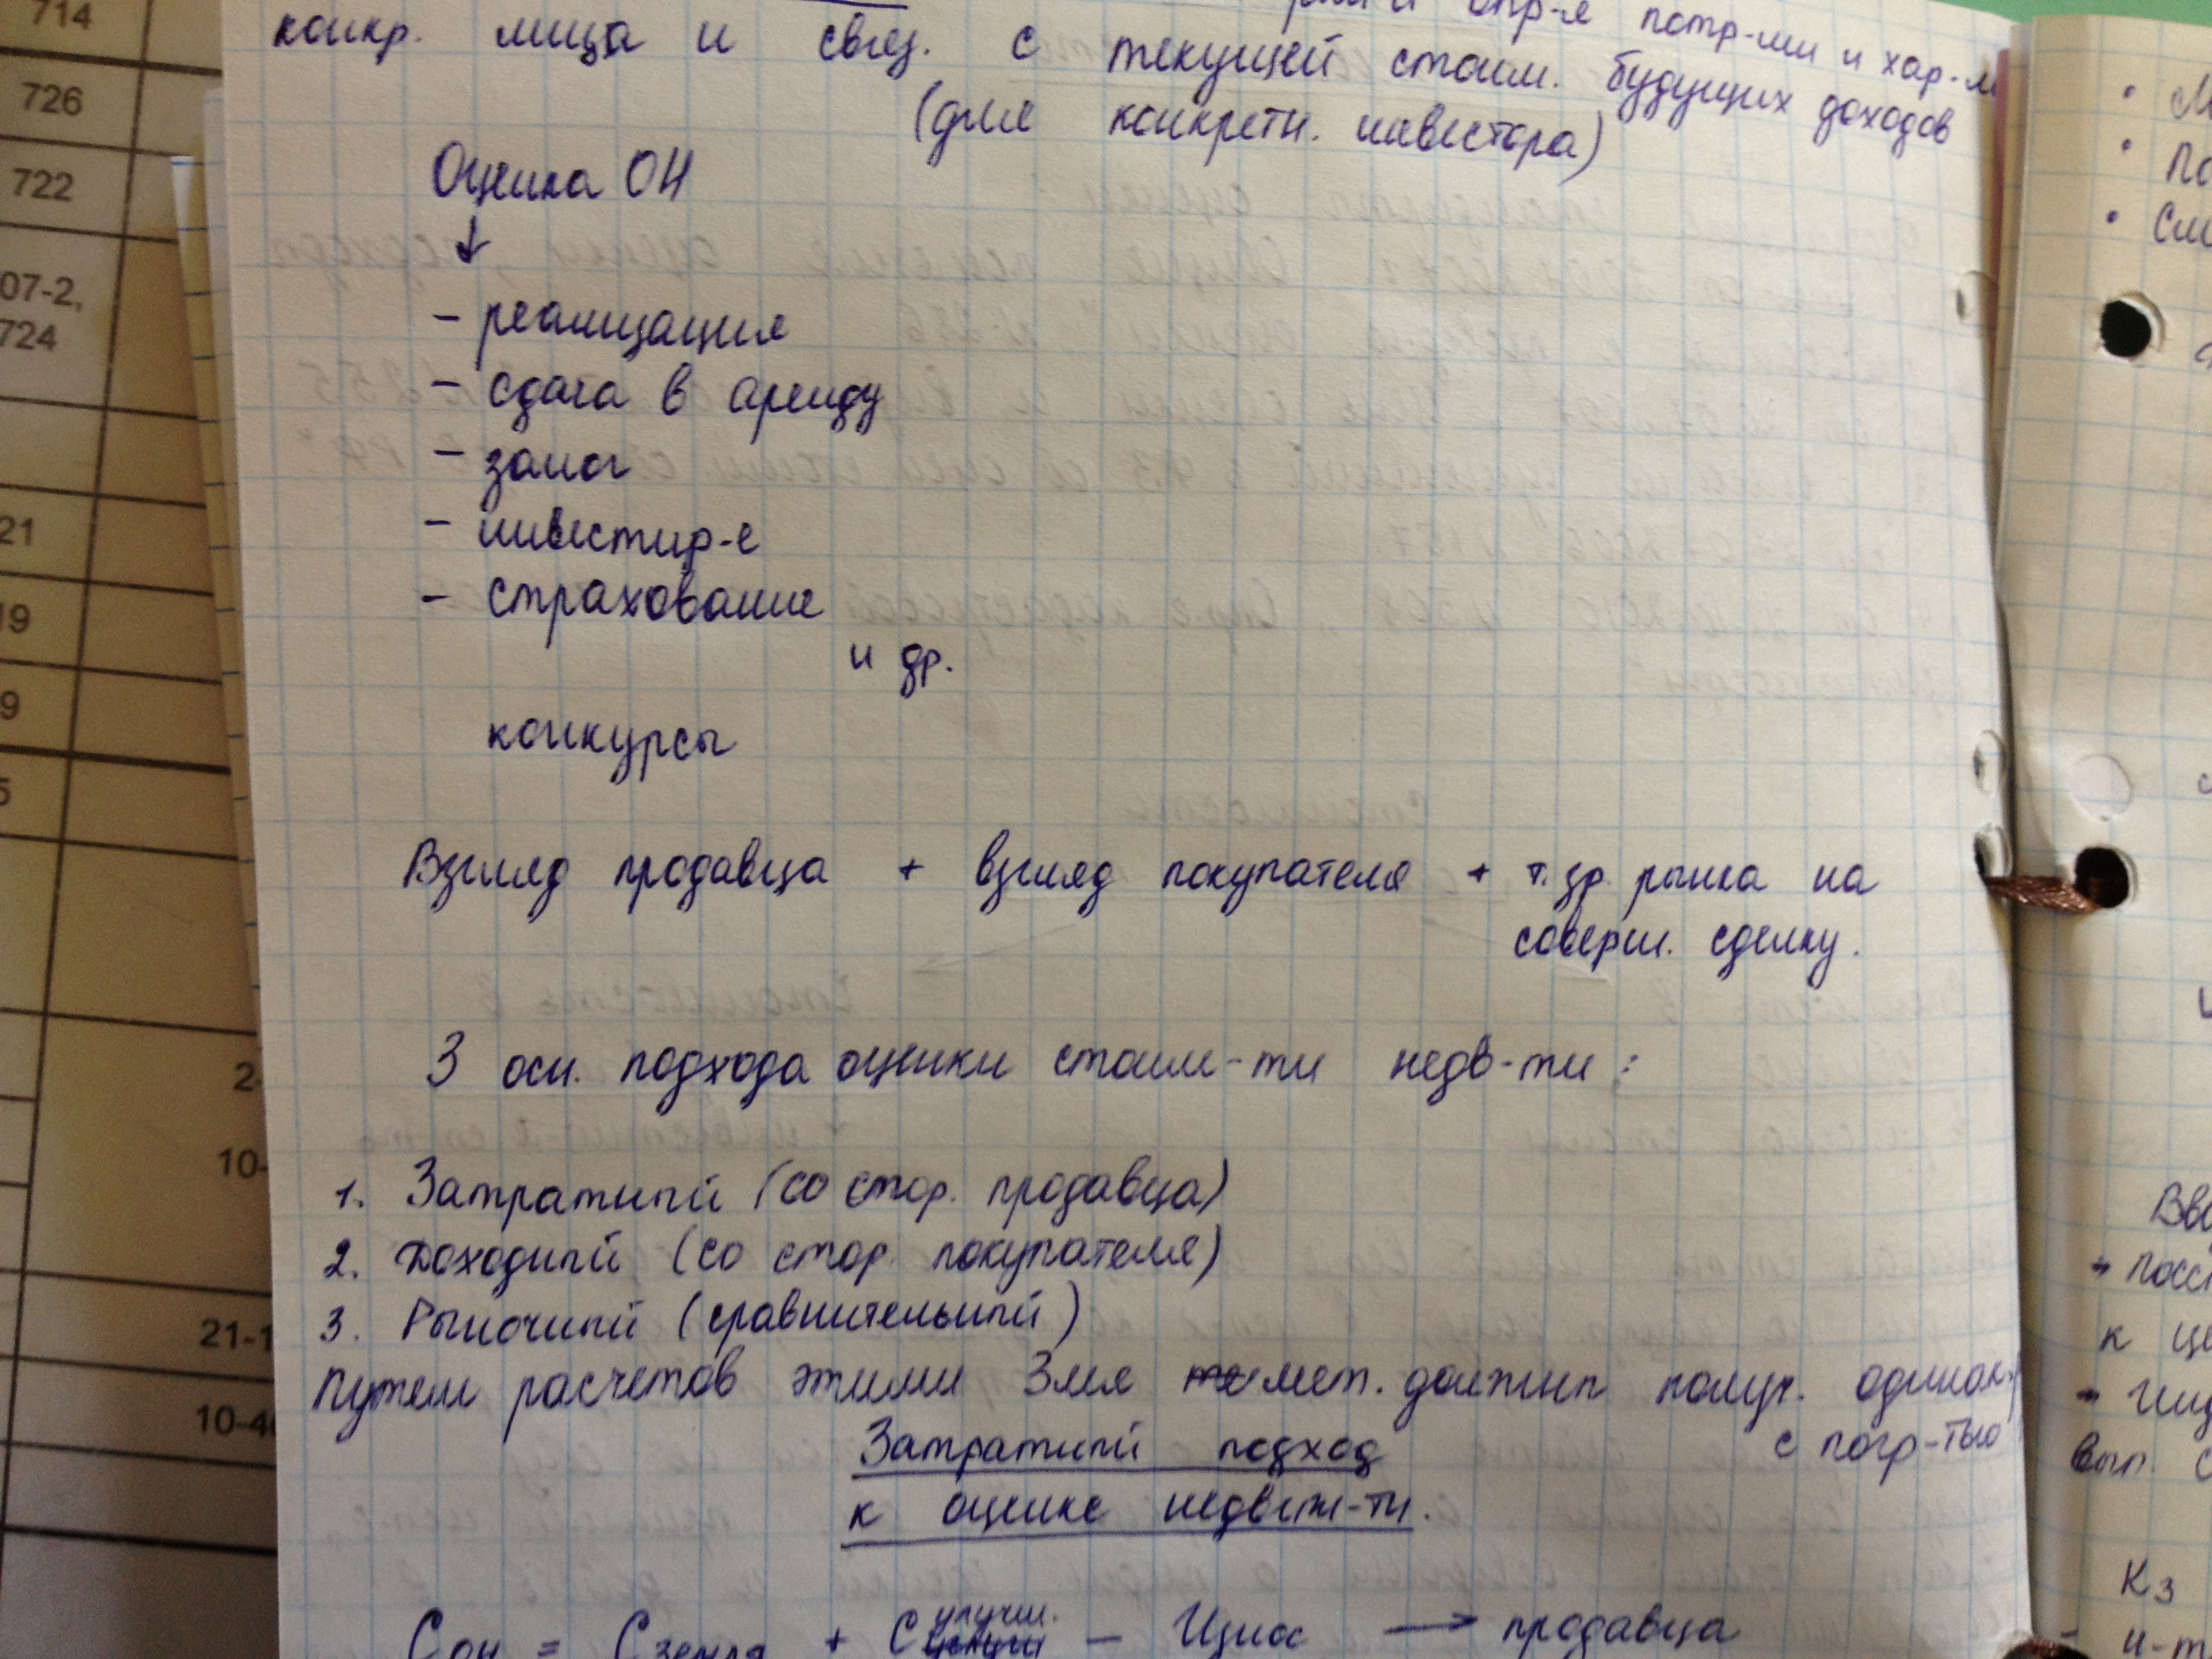 714
726
722
07-2,
724
21
19
9
5
2-
10-
21-1
10-4
опр-е потр-ми и хар-
конкр. лица и связ. с текущей стоим. будущих доходов
(для конкретн. инвестора)
Оценка ОН
↓
- реализация
- сдача в аренду
- залог
- инвестир-е
- страхование
и др.
конкурсы
Взгляд продавца + взгляд покупателя + т.зр. рынка на
соверш. сделку.
3 осн. подхода оценки стоим-ти недв-ти:
1. Затратный (со стор. продавца)
2. Доходный (со стор. покупателя)
3. Рыночный (сравнительный)
Путем расчетов этими 3мя мет. должны получ. одинак.
с погр-тью
Затратный подход
к оценке недвиж-ти.
Сон = Сземля + Сулучш. - Износ → продавца
По
Вво
к це
вып. с
Кз